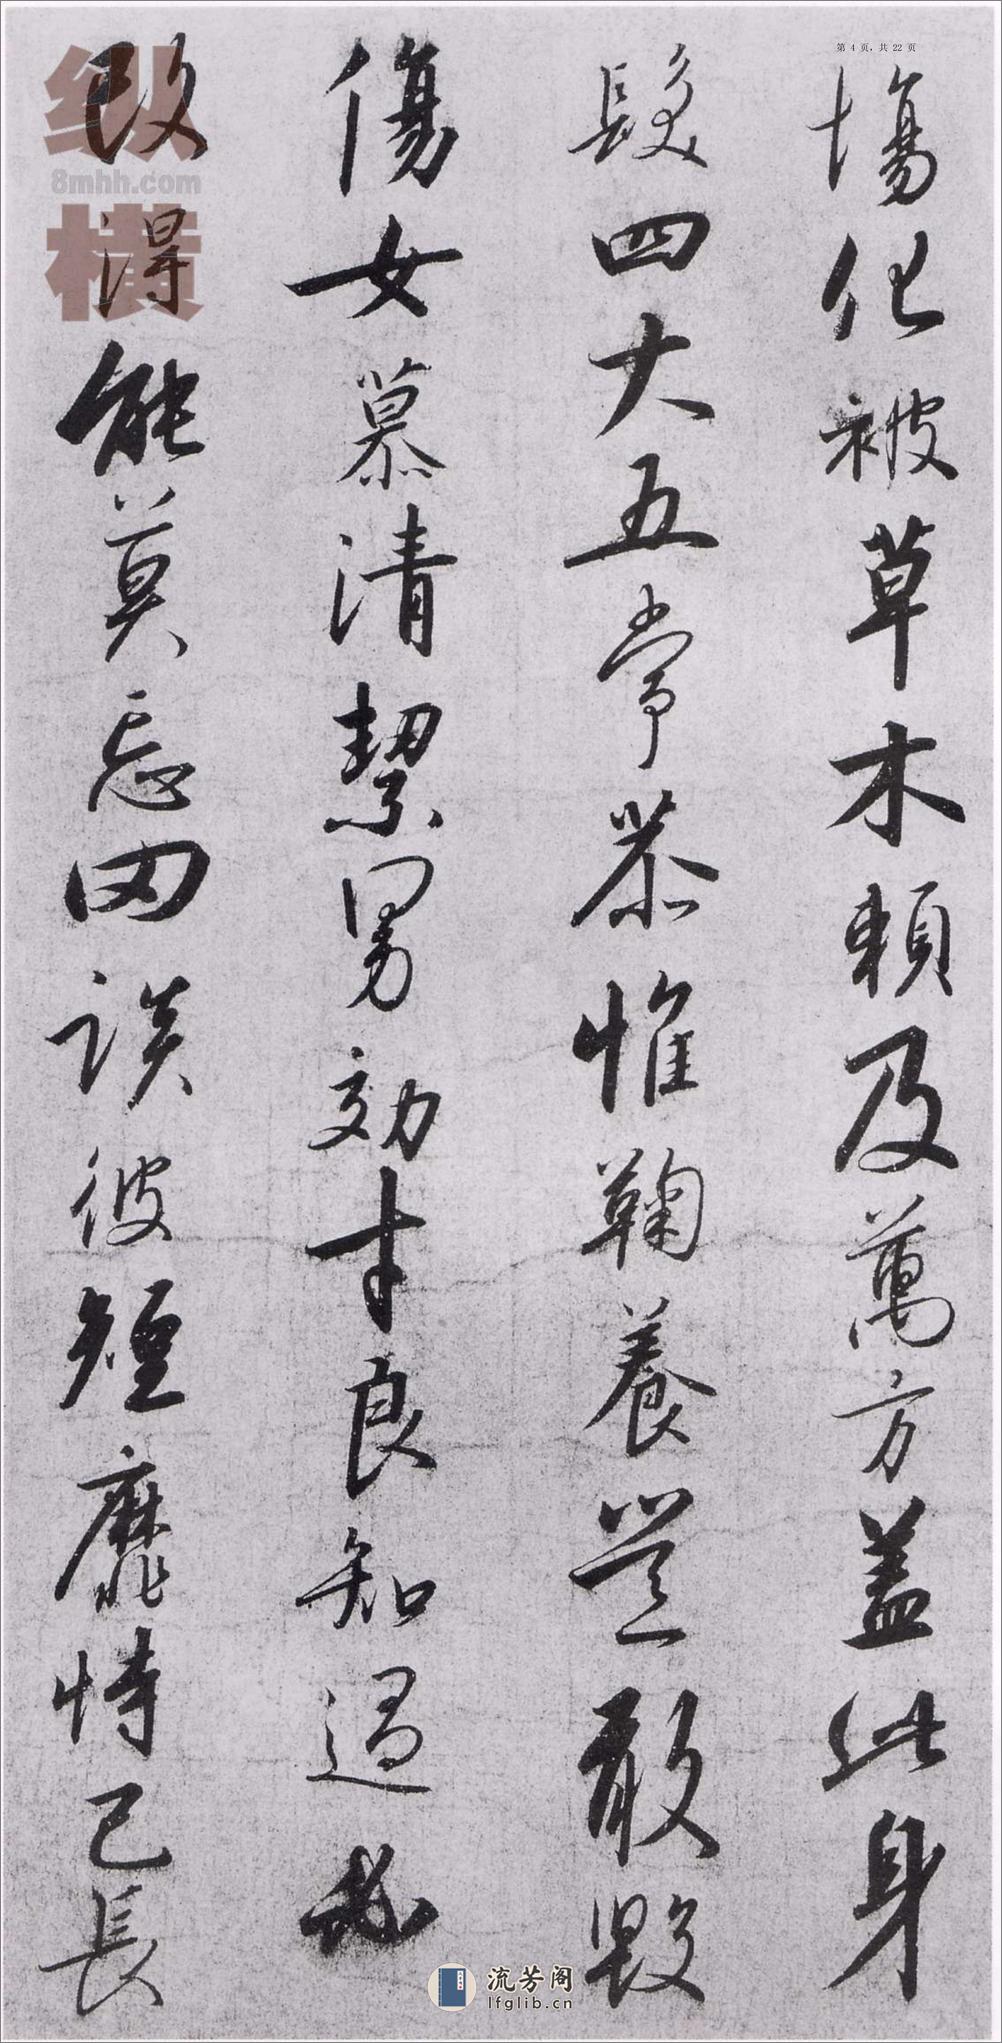 第 4 页，共 22 页
塲化被草木賴及萬方盖此身
髮四大五常恭惟鞠養豈敢毀
傷女慕清絜男効才良知過必
改得能莫忘罔談彼短靡恃己長
纵横
8mhh.com
流芳阁
lfglib.cn